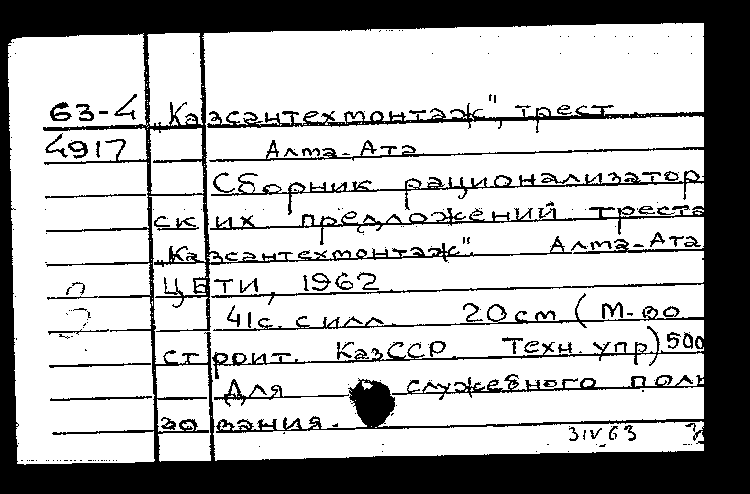 63-4 „Казсантехмонтаж", трест
4917 Алма-Ата
Сборник рационализатор-
ских предложений треста
„Казсантехмонтаж". Алма-Ата,
ЦБТИ, 1962.
41с. с илл. 20см (М-во
строит. КазССР. Техн. упр) 500
Для служебного поль
зования.
3IV63